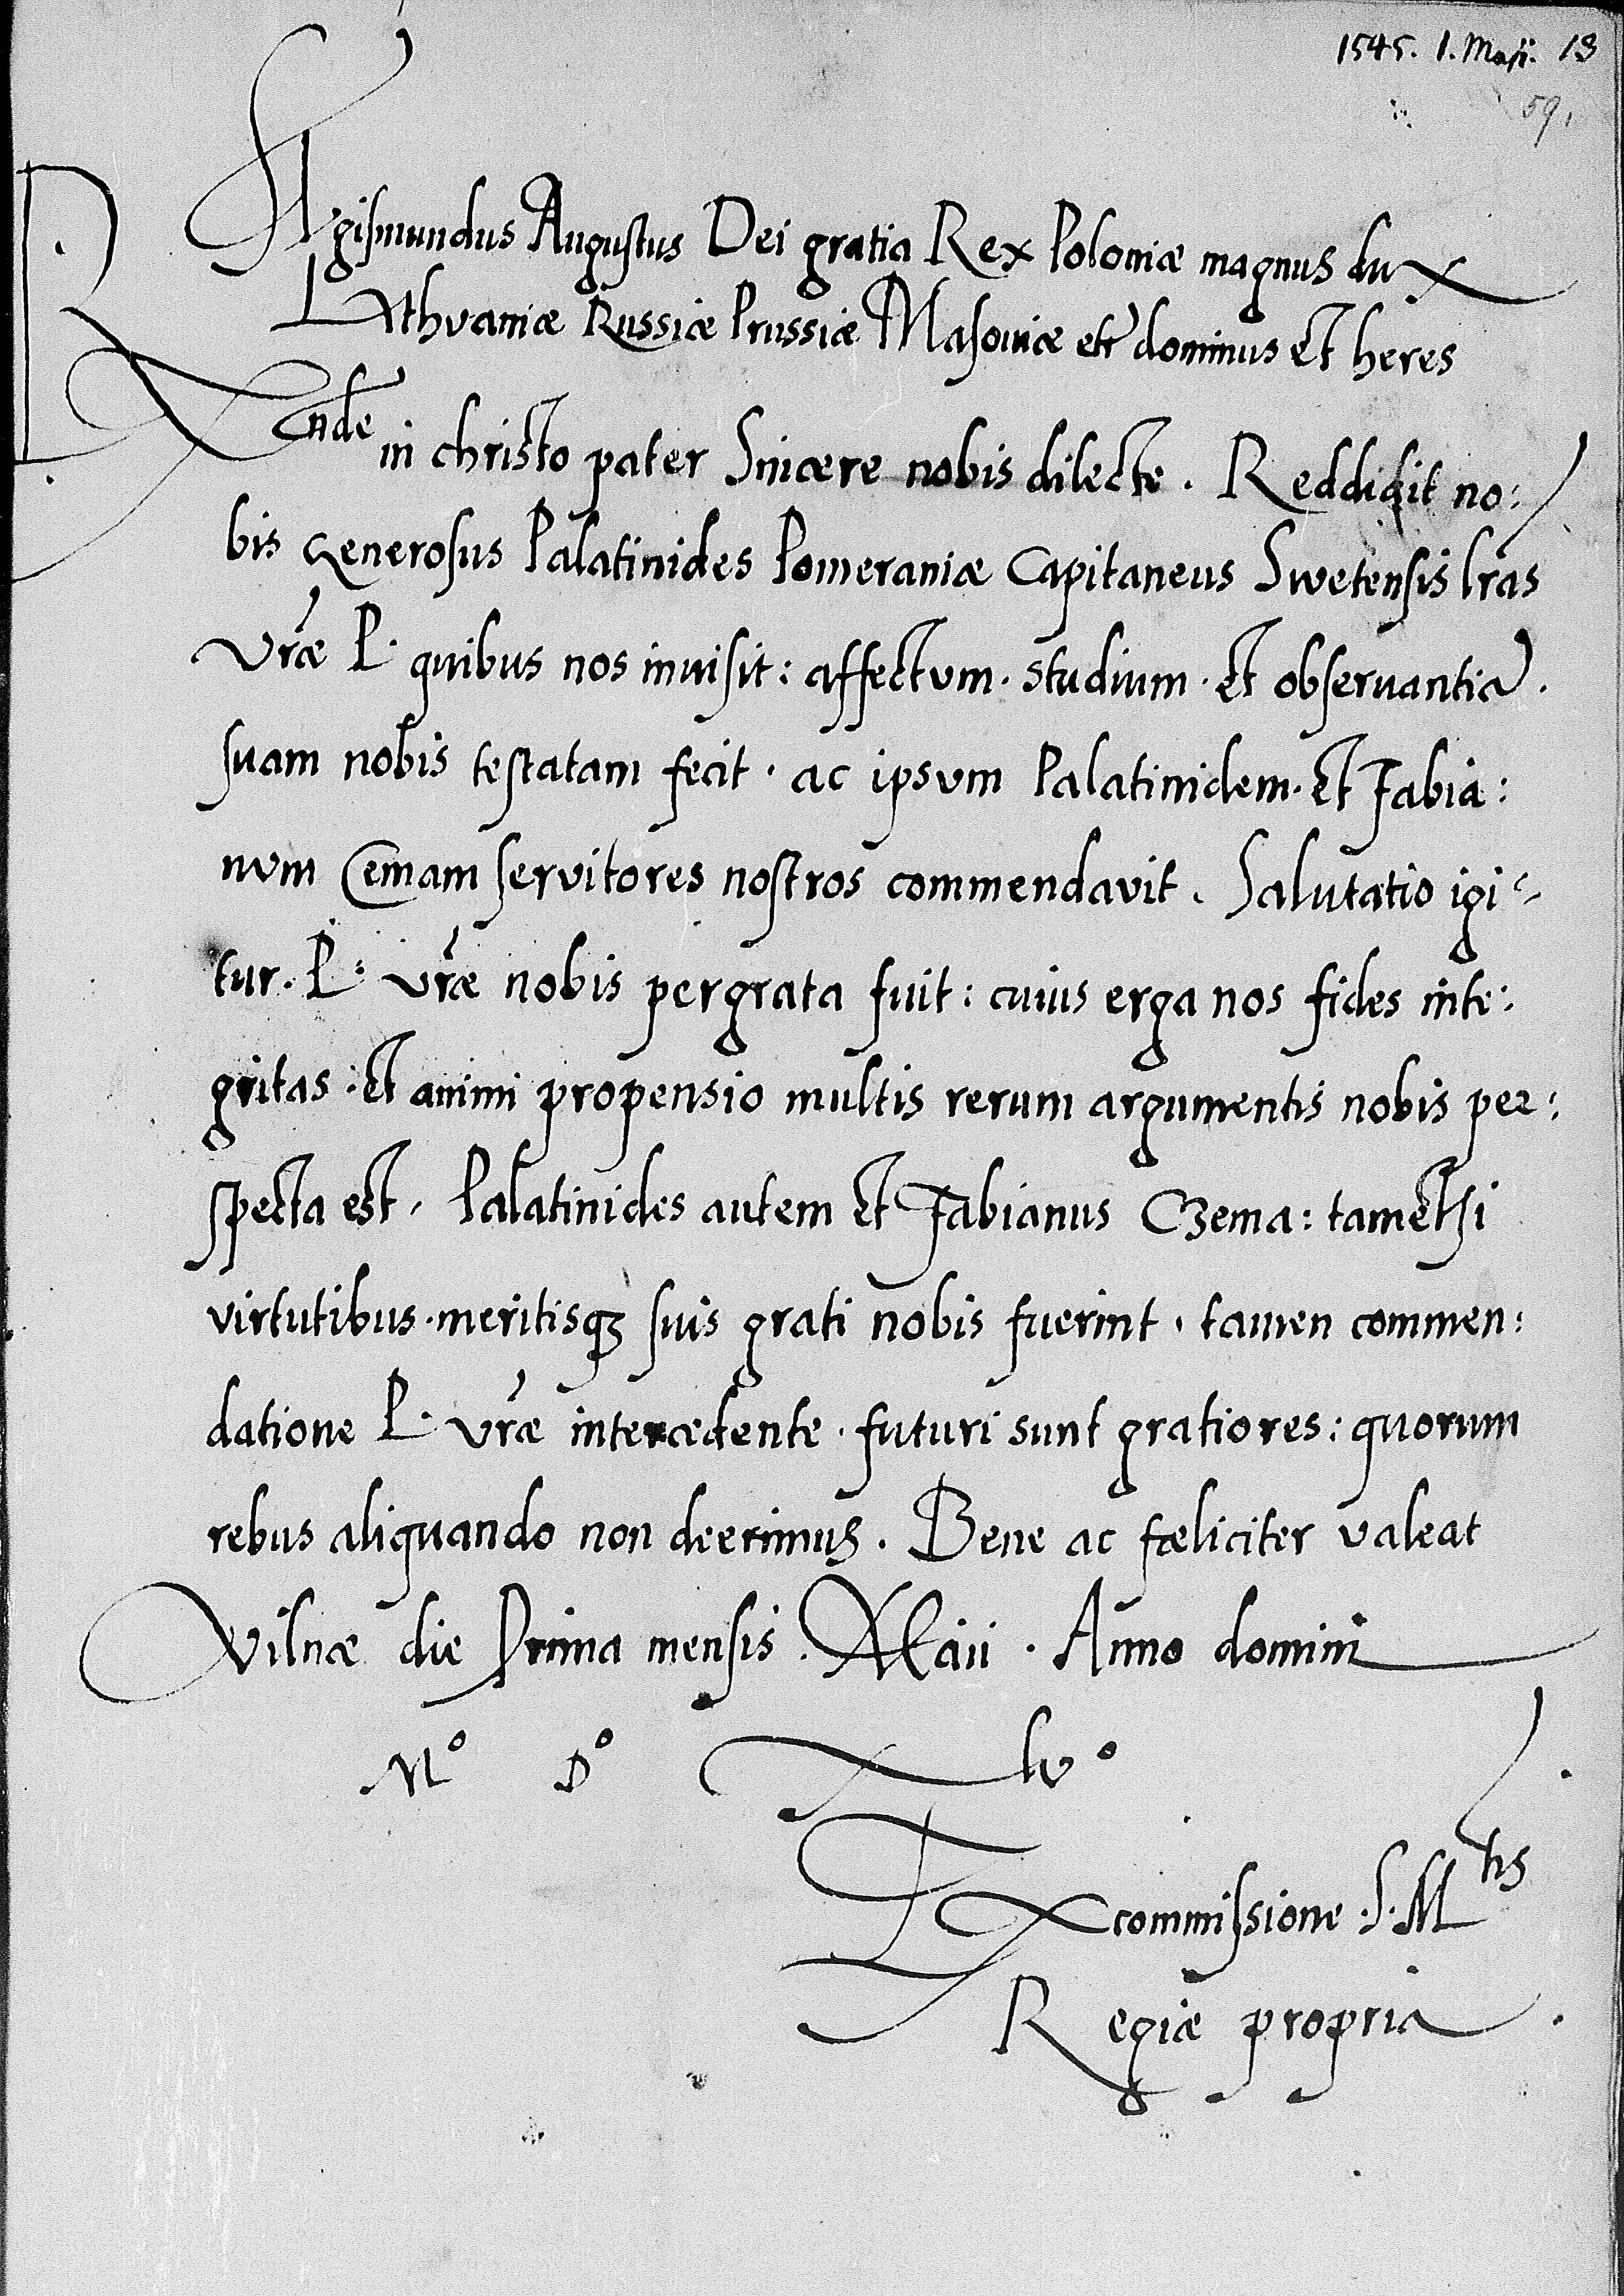 1545. 1. Maji. 18
59.
Sigismundus Augustus Dei gratia Rex Poloniæ magnus dux
Lithvaniæ Russiæ Prussiæ Masoviæ etc̃ dominus et heres
Rnde in christo pater Sincere nobis dilecte. Reddidit no:
bis generosus Palatinides Pomeraniæ Capitaneus Swetensis lras
vræ P. quibus nos inuisit: affectvm. studium. et obseruantiã.
suam nobis testatam fecit. ac ipsvm Palatinidem. et Fabia:
nvm Cemam servitores nostros commendavit. Salutatio igi=
tur. P: vræ nobis pergrata fuit: cuius erga nos fides inte:
gritas. et animi propensio multis rerum argumentis nobis per:
specta est. Palatinides autem et Fabianus Czema: tametsi
virtutibus. meritisqȝ suis grati nobis fuerint. tamen commen:
datione P. vræ intercedente. futuri sunt gratiores: quorum
rebus aliquando non deerimus. Bene ac fæliciter valeat
Vilnæ die Prima mensis. Maii. Anno domini
M° D° xlv°
Ex commissione. S. M tis
Regiæ propria.